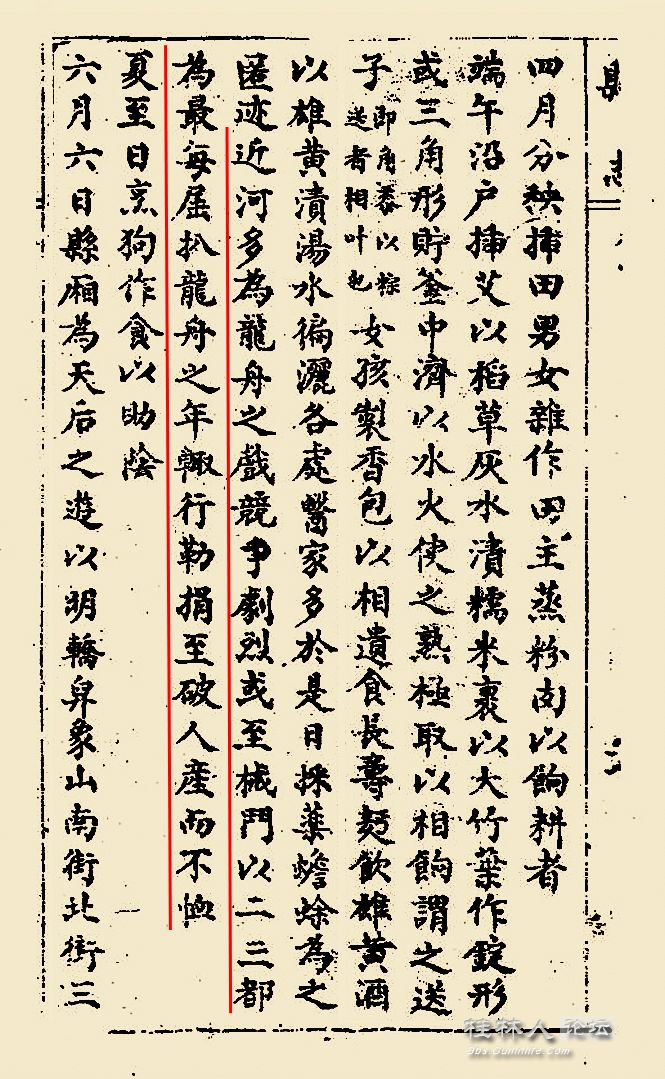 縣志
四月分秧揷田男女雜作田主蒸粉肉以餉耕者
端午沿戶揷艾以稻草灰水漬糯米裹以大竹葉作錠形
或三角形貯釜中濟以水火使之熟極取以相餉謂之送
子即角黍以粽送者相叶也女孩製香包以相遺食長壽麪飲雄黃酒
以雄黃漬湯水徧灑各處醫家多於是日採藥蟾蜍為之
匿迹近河多為龍舟之戲競爭劇烈或至械鬥以二三都
為最每屆扒龍舟之年輙行勒捐至破人產而不恤
夏至日烹狗作食以助陰
六月六日縣廂為天后之遊以明轎舁象山南街北街三
桂林人论坛
bbs.Guilinlife.com